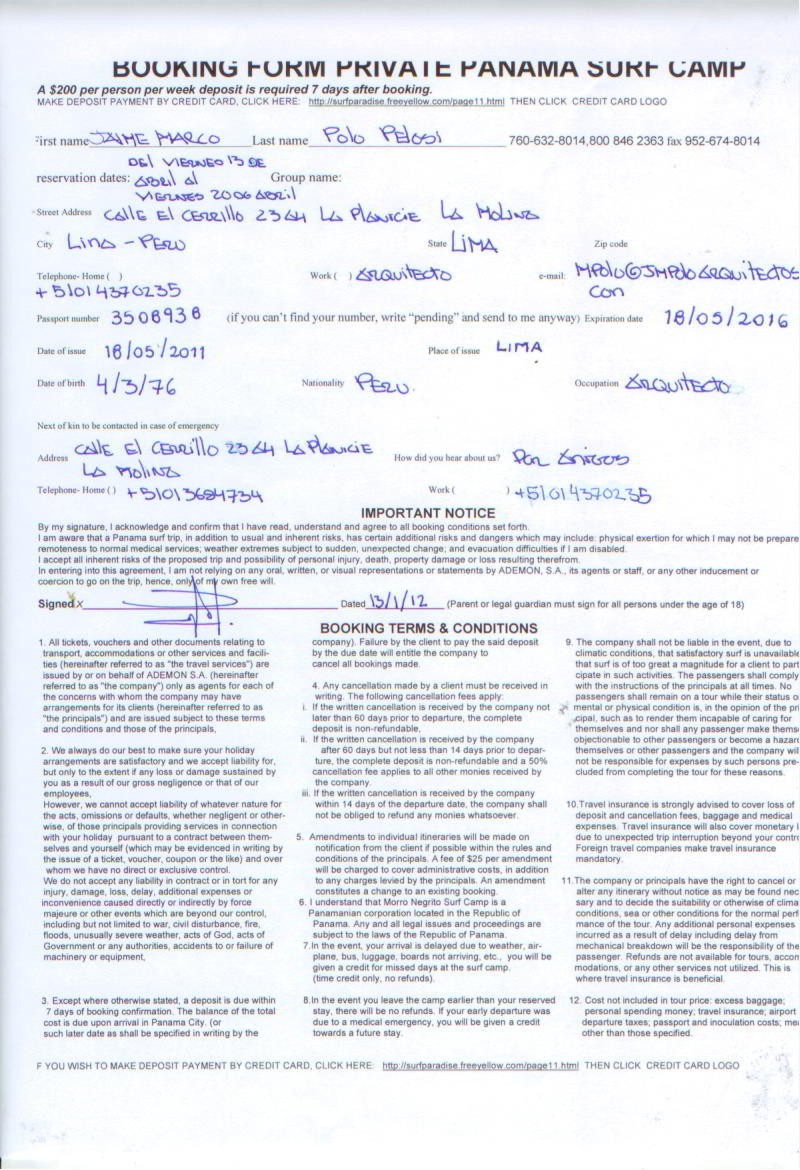 BOOKING FORM PRIVATE PANAMA SURF CAMP
A $200 per person per week deposit is required 7 days after booking.
MAKE DEPOSIT PAYMENT BY CREDIT CARD, CLICK HERE: http://surfparadise.freeyellow.com/page11.html THEN CLICK CREDIT CARD LOGO
First name JAIME MARCO Last name POLO PELOSI 760-632-8014,800 846 2363 fax 952-674-8014
DEL VIERNEO 13 DE
reservation dates: ABRIL al Group name:
VIERNES 20 ABRIL
Street Address CALLE EL CERRILLO 2364 LA PLANICIE LA MOLINA
City LIMA - PERU State LIMA Zip code
Telephone- Home ( ) Work ( ) ARQUITECTO e-mail: MPOLO@JMPOLOARQUITECTOS
+51014370235 COM
Passport number 3508938 (if you can't find your number, write "pending" and send to me anyway) Expiration date 18/05/2016
Date of issue 18/05/2011 Place of issue LIMA
Date of birth 4/3/76 Nationality PERU. Occupation ARQUITECTO
Next of kin to be contacted in case of emergency
Address CALLE EL CERRILLO 2364 LA PLANICIE How did you hear about us? POR AMIGOS
LA MOLINA
Telephone- Home ( ) +51013684734 Work ( ) +51014370235
IMPORTANT NOTICE
By my signature, I acknowledge and confirm that I have read, understand and agree to all booking conditions set forth.
I am aware that a Panama surf trip, in addition to usual and inherent risks, has certain additional risks and dangers which may include: physical exertion for which I may not be prepare
remoteness to normal medical services; weather extremes subject to sudden, unexpected change; and evacuation difficulties if I am disabled.
I accept all inherent risks of the proposed trip and possibility of personal injury, death, property damage or loss resulting therefrom.
In entering into this agreement, I am not relying on any oral, written, or visual representations or statements by ADEMON, S.A., its agents or staff, or any other inducement or
coercion to go on the trip, hence, only of my own free will.
Signed x Dated 13/1/12 (Parent or legal guardian must sign for all persons under the age of 18)
BOOKING TERMS & CONDITIONS
1. All tickets, vouchers and other documents relating to
transport, accommodations or other services and facili-
ties (hereinafter referred to as "the travel services") are
issued by or on behalf of ADEMON S.A. (hereinafter
referred to as "the company") only as agents for each of
the concerns with whom the company may have
arrangements for its clients (hereinafter referred to as
"the principals") and are issued subject to these terms
and conditions and those of the principals,
2. We always do our best to make sure your holiday
arrangements are satisfactory and we accept liability for,
but only to the extent if any loss or damage sustained by
you as a result of our gross negligence or that of our
employees,
However, we cannot accept liability of whatever nature for
the acts, omissions or defaults, whether negligent or other-
wise, of those principals providing services in connection
with your holiday pursuant to a contract between them-
selves and yourself (which may be evidenced in writing by
the issue of a ticket, voucher, coupon or the like) and over
whom we have no direct or exclusive control.
We do not accept any liability in contract or in tort for any
injury, damage, loss, delay, additional expenses or
inconvenience caused directly or indirectly by force
majeure or other events which are beyond our control,
including but not limited to war, civil disturbance, fire,
floods, unusually severe weather, acts of God, acts of
Government or any authorities, accidents to or failure of
machinery or equipment,
3. Except where otherwise stated, a deposit is due within
7 days of booking confirmation. The balance of the total
cost is due upon arrival in Panama City. (or
such later date as shall be specified in writing by the
company). Failure by the client to pay the said deposit
by the due date will entitle the company to
cancel all bookings made.
4. Any cancellation made by a client must be received in
writing. The following cancellation fees apply:
i. If the written cancellation is received by the company not
later than 60 days prior to departure, the complete
deposit is non-refundable,
ii. If the written cancellation is received by the company
after 60 days but not less than 14 days prior to depar-
ture, the complete deposit is non-refundable and a 50%
cancellation fee applies to all other monies received by
the company.
iii. If the written cancellation is received by the company
within 14 days of the departure date, the company shall
not be obliged to refund any monies whatsoever.
5. Amendments to individual itineraries will be made on
notification from the client if possible within the rules and
conditions of the principals. A fee of $25 per amendment
will be charged to cover administrative costs, in addition
to any charges levied by the principals. An amendment
constitutes a change to an existing booking.
6. I understand that Morro Negrito Surf Camp is a
Panamanian corporation located in the Republic of
Panama. Any and all legal issues and proceedings are
subject to the laws of the Republic of Panama.
7. In the event, your arrival is delayed due to weather, air-
plane, bus, luggage, boards not arriving, etc., you will be
given a credit for missed days at the surf camp.
(time credit only, no refunds).
8. In the event you leave the camp earlier than your reserved
stay, there will be no refunds. If your early departure was
due to a medical emergency, you will be given a credit
towards a future stay.
9. The company shall not be liable in the event, due to
climatic conditions, that satisfactory surf is unavailable
that surf is of too great a magnitude for a client to part
cipate in such activities. The passengers shall comply
with the instructions of the principals at all times. No
passengers shall remain on a tour while their status o
mental or physical condition is, in the opinion of the pri
cipal, such as to render them incapable of caring for
themselves and nor shall any passenger make thems
objectionable to other passengers or become a hazard
themselves or other passengers and the company wil
not be responsible for expenses by such persons pre-
cluded from completing the tour for these reasons.
10. Travel insurance is strongly advised to cover loss of
deposit and cancellation fees, baggage and medical
expenses. Travel insurance will also cover monetary l
due to unexpected trip interruption beyond your contro
Foreign travel companies make travel insurance
mandatory.
11. The company or principals have the right to cancel or
alter any itinerary without notice as may be found nec
sary and to decide the suitability or otherwise of clima
conditions, sea or other conditions for the normal perf
mance of the tour. Any additional personal expenses
incurred as a result of delay including delay from
mechanical breakdown will be the responsibility of the
passenger. Refunds are not available for tours, accon
modations, or any other services not utilized. This is
where travel insurance is beneficial.
12. Cost not included in tour price: excess baggage;
personal spending money; travel insurance; airport
departure taxes; passport and inoculation costs; me
other than those specified.
F YOU WISH TO MAKE DEPOSIT PAYMENT BY CREDIT CARD, CLICK HERE: http://surfparadise.freeyellow.com/page11.html THEN CLICK CREDIT CARD LOGO